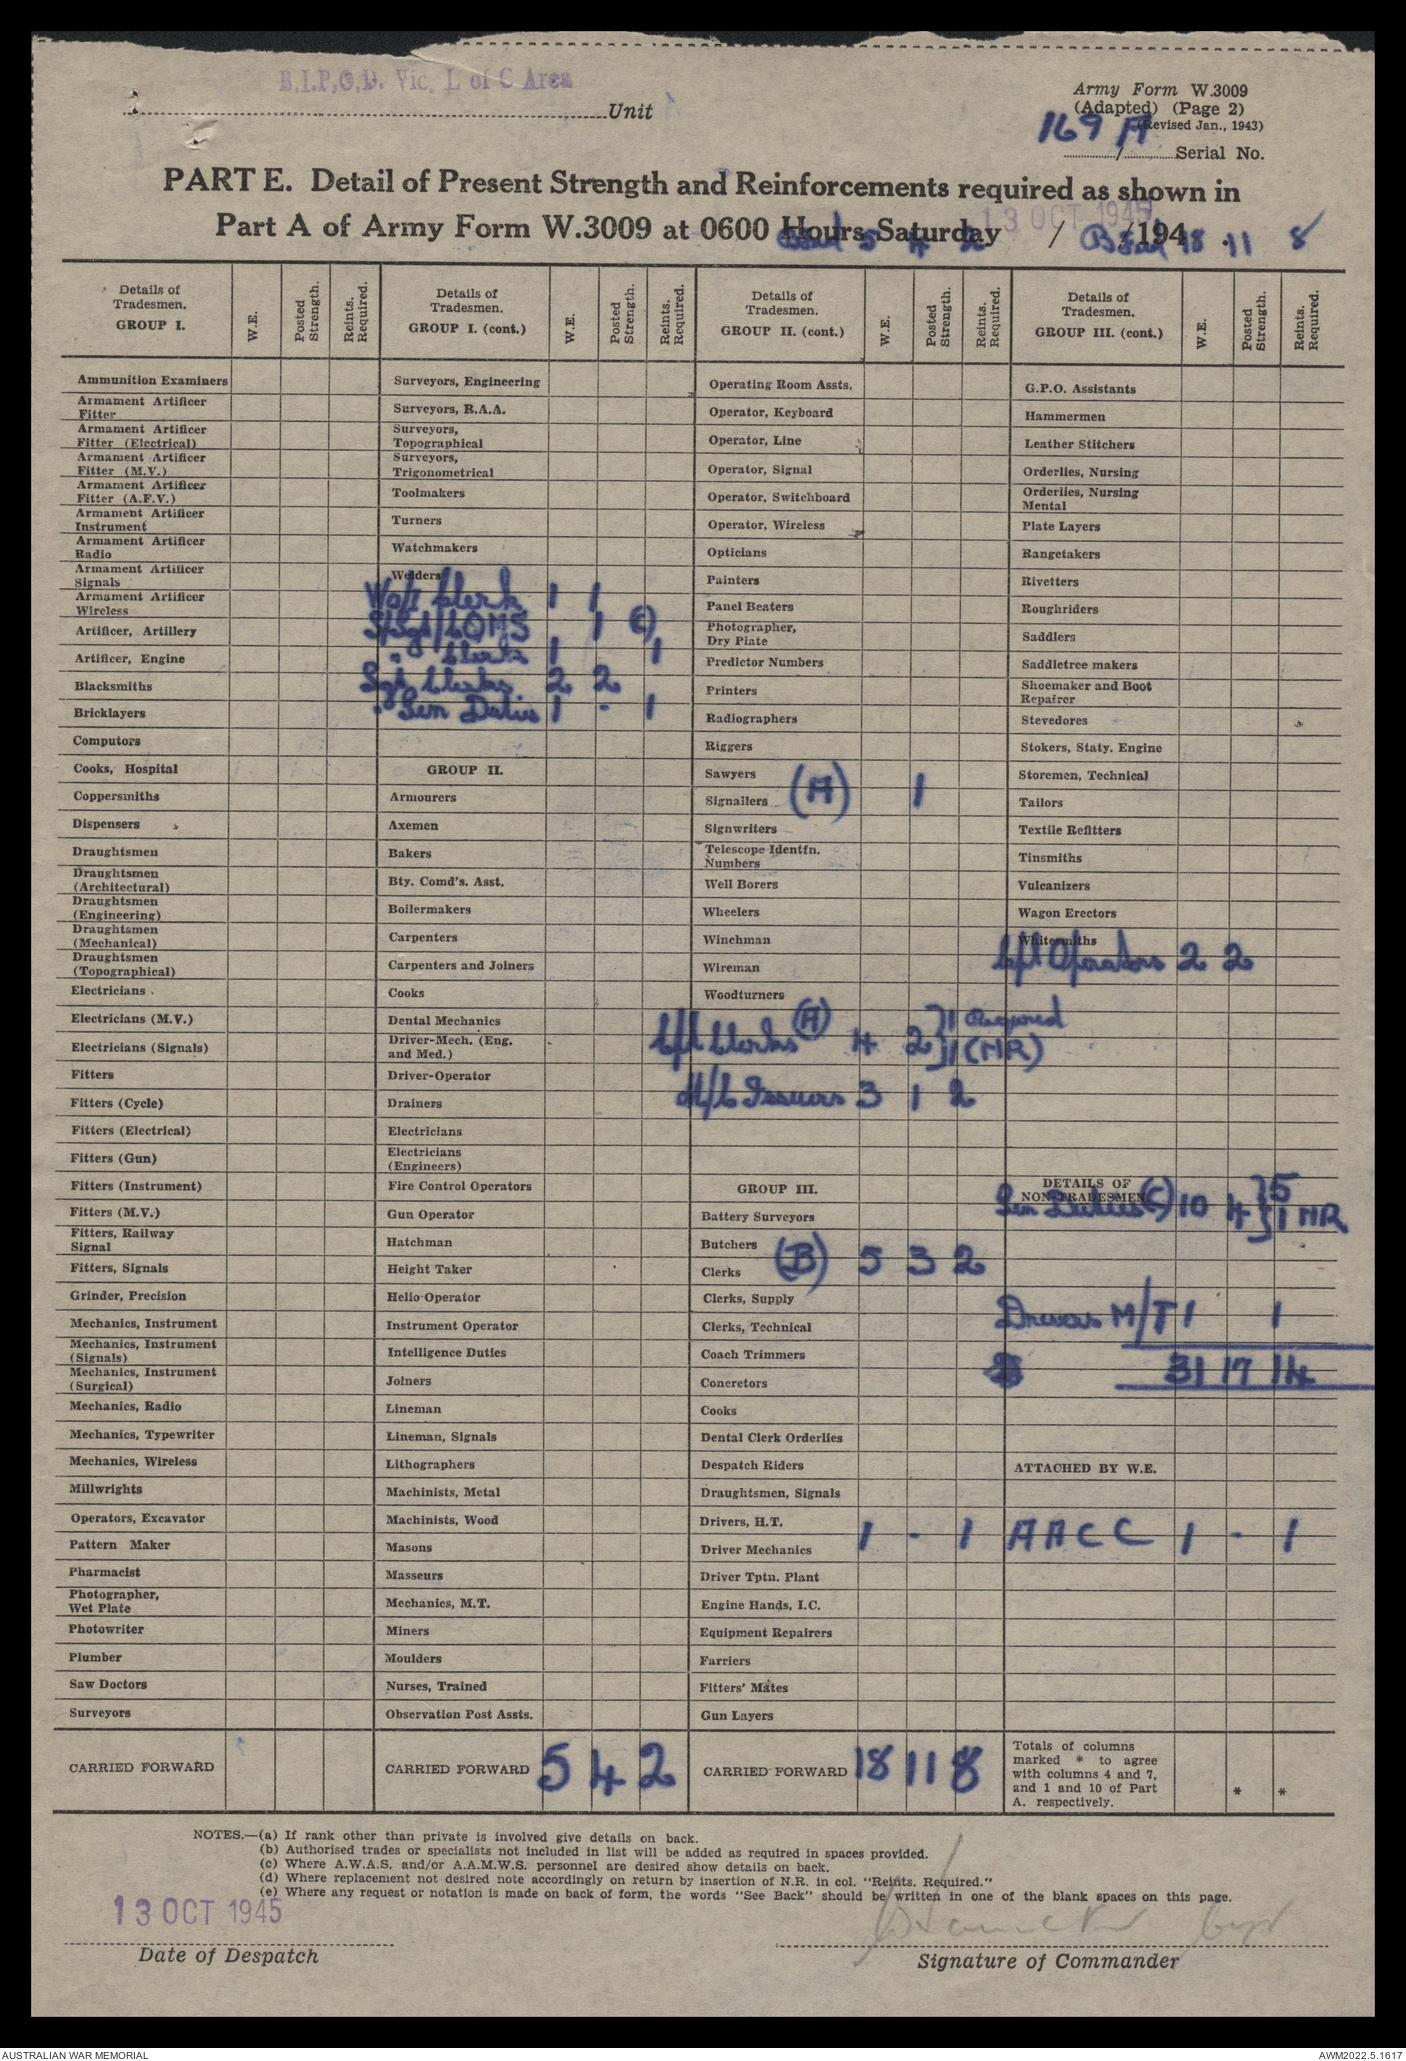 B.I.P.O.D. Vic. L of C Area
Unit
Army Form W.3009
(Adapted) (Page 2)
(Revised Jan., 1943)
169 A
/ Serial No.
PART E. Detail of Present Strength and Reinforcements required as shown in
Part A of Army Form W.3009 at 0600 Hours Saturday / /194 .
13 OCT 1945
5 4 2
18 11 8
Details of Tradesmen. GROUP I. W.E. Posted Strength. Reints. Required.
Ammunition Examiners
Armament Artificer Fitter
Armament Artificer Fitter (Electrical)
Armament Artificer Fitter (M.V.)
Armament Artificer Fitter (A.F.V.)
Armament Artificer Instrument
Armament Artificer Radio
Armament Artificer Signals
Armament Artificer Wireless
Artificer, Artillery
Artificer, Engine
Blacksmiths
Bricklayers
Computors
Cooks, Hospital
Coppersmiths
Dispensers
Draughtsmen
Draughtsmen (Architectural)
Draughtsmen (Engineering)
Draughtsmen (Mechanical)
Draughtsmen (Topographical)
Electricians
Electricians (M.V.)
Electricians (Signals)
Fitters
Fitters (Cycle)
Fitters (Electrical)
Fitters (Gun)
Fitters (Instrument)
Fitters (M.V.)
Fitters, Railway Signal
Fitters, Signals
Grinder, Precision
Mechanics, Instrument
Mechanics, Instrument (Signals)
Mechanics, Instrument (Surgical)
Mechanics, Radio
Mechanics, Typewriter
Mechanics, Wireless
Millwrights
Operators, Excavator
Pattern Maker
Pharmacist
Photographer, Wet Plate
Photowriter
Plumber
Saw Doctors
Surveyors
CARRIED FORWARD
Details of Tradesmen. GROUP I. (cont.) W.E. Posted Strength. Reints. Required.
Surveyors, Engineering
Surveyors, R.A.A.
Surveyors, Topographical
Surveyors, Trigonometrical
Toolmakers
Turners
Watchmakers
Welders
Wo/I Clerk 1 1
S/Sgt/CQMS 1 (C)
" Clerks 1 1
Sgt Clerks 2 2
" Gen Duties 1 - 1
GROUP II.
Armourers
Axemen
Bakers
Bty. Comd's. Asst.
Boilermakers
Carpenters
Carpenters and Joiners
Cooks
Dental Mechanics
Driver-Mech. (Eng. and Med.)
Driver-Operator
Drainers
Electricians
Electricians (Engineers)
Fire Control Operators
Gun Operator
Hatchman
Height Taker
Helio-Operator
Instrument Operator
Intelligence Duties
Joiners
Lineman
Lineman, Signals
Lithographers
Machinists, Metal
Machinists, Wood
Masons
Masseurs
Mechanics, M.T.
Miners
Moulders
Nurses, Trained
Observation Post Assts.
CARRIED FORWARD 5 4 2
Details of Tradesmen. GROUP II. (cont.) W.E. Posted Strength. Reints. Required.
Operating Room Assts.
Operator, Keyboard
Operator, Line
Operator, Signal
Operator, Switchboard
Operator, Wireless
Opticians
Painters
Panel Beaters
Photographer, Dry Plate
Predictor Numbers
Printers
Radiographers
Riggers
Sawyers
Signallers (A) 1
Signwriters
Telescope Identfn. Numbers
Well Borers
Wheelers
Winchman
Wireman
Woodturners
Cpl Clerks (A) 4 2 } 1 Required
1 (NR)
Issuers 3 1 2
GROUP III.
Battery Surveyors
Butchers
Clerks (B) 5 3 2
Clerks, Supply
Clerks, Technical
Coach Trimmers
Concretors
Cooks
Dental Clerk Orderlies
Despatch Riders
Draughtsmen, Signals
Drivers, H.T.
Driver Mechanics 1 - 1
Driver Tptn. Plant
Engine Hands, I.C.
Equipment Repairers
Farriers
Fitters' Mates
Gun Layers
CARRIED FORWARD 18 11 8
Details of Tradesmen. GROUP III. (cont.) W.E. Posted Strength. Reints. Required.
G.P.O. Assistants
Hammermen
Leather Stitchers
Orderlies, Nursing
Orderlies, Nursing Mental
Plate Layers
Rangetakers
Rivetters
Roughriders
Saddlers
Saddletree makers
Shoemaker and Boot Repairer
Stevedores
Stokers, Staty. Engine
Storemen, Technical
Tailors
Textile Refitters
Tinsmiths
Vulcanizers
Wagon Erectors
Whitesmiths
Cpl Operators 2 2
DETAILS OF NON-TRADESMEN
Gen Duties (C) 10 4 } 5
1 NR
Drivers M/T 1 1
31 17 14
ATTACHED BY W.E.
AACC 1 - 1
Totals of columns marked * to agree with columns 4 and 7, and 1 and 10 of Part A. respectively. * *
NOTES.—(a) If rank other than private is involved give details on back.
(b) Authorised trades or specialists not included in list will be added as required in spaces provided.
(c) Where A.W.A.S. and/or A.A.M.W.S. personnel are desired show details on back.
(d) Where replacement not desired note accordingly on return by insertion of N.R. in col. "Reints. Required."
(e) Where any request or notation is made on back of form, the words "See Back" should be written in one of the blank spaces on this page.
13 OCT 1945
Date of Despatch
Signature of Commander
AUSTRALIAN WAR MEMORIAL
AWM2022.5.1617